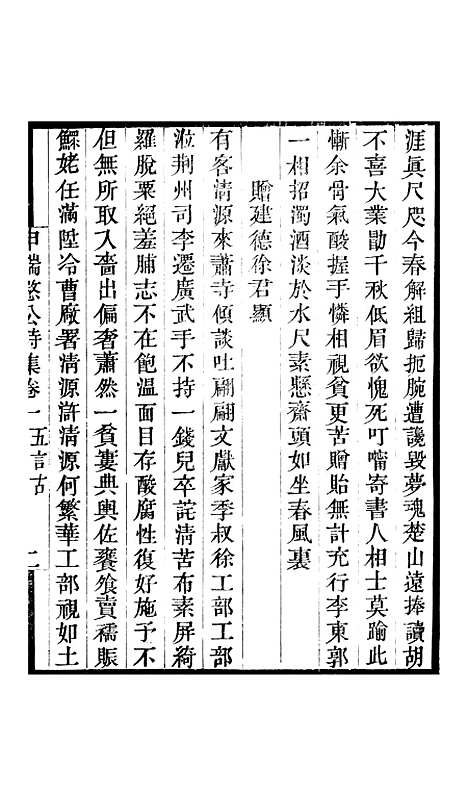 涯眞尺咫今春解組歸扼腕遭讒毀夢魂楚山遠捧讀胡
不喜大業勖千秋低眉欲愧死叮嚀寄書人相士莫踰此
慚余骨氣酸握手憐相視貧更苦贈貽無計充行李東郭
一相招濁酒淡於水尺素懸齋頭如坐春風裏
贈建德徐君顯
有客清源來蕭寺傾談吐翩翩文獻家季叔徐工部工部
涖荆州司李遷廣武手不持一錢兒卒詫清苦布素屏綺
羅脫粟絕羞脯志不在飽溫面目存酸腐性復好施予不
但無所取入嗇出偏奢蕭然一貧寠典輿佐饔飧賣襦賑
鰥姥任滿陞冷曹廠署清源滸清源何繁華工部視如土
申端愍公詩集卷一五言古 二